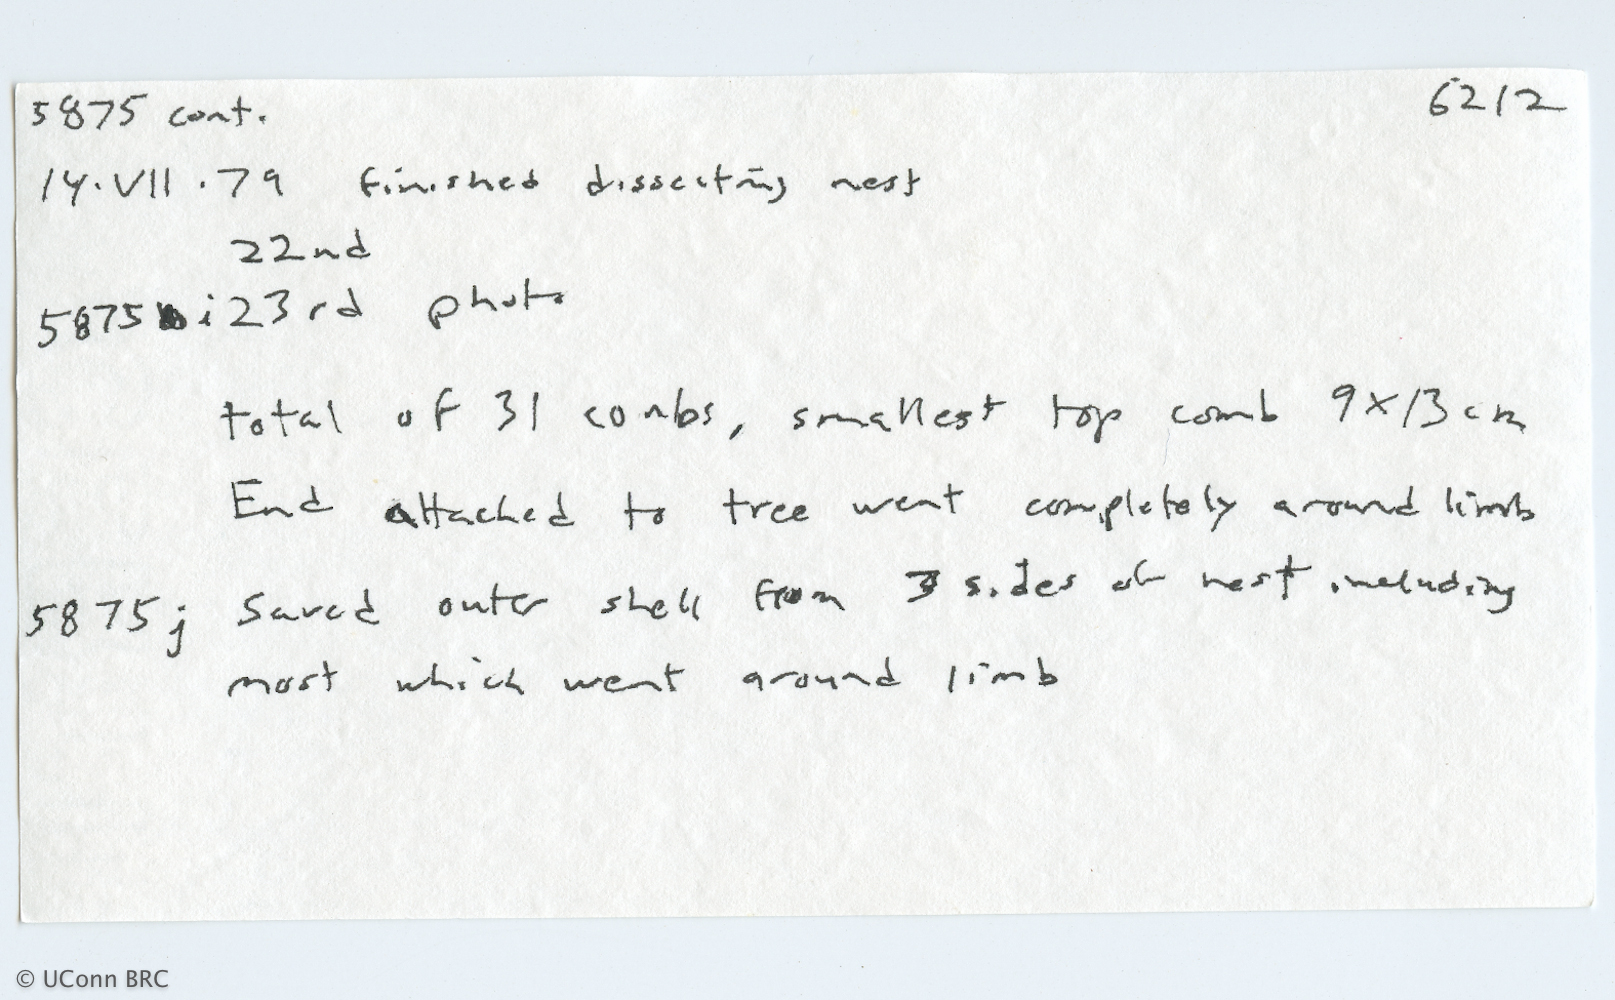 5875 cont. 6212
14.VII.79 finished dissecting nest
22nd
5875 i 23rd photo
total of 31 combs, smallest top comb 9x13cm
End attached to tree went completely around limb
5875j Saved outer shell from 3 sides of nest including
most which went around limb
© UConn BRC